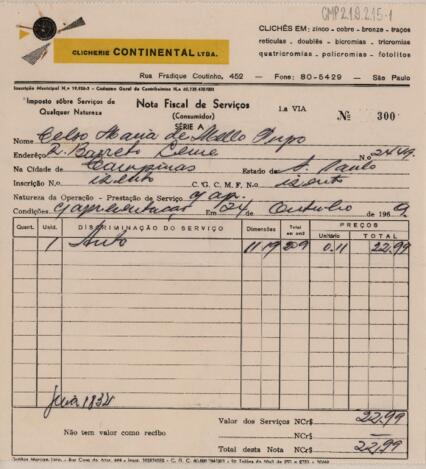 GMP 2.1.9.215-1
CLICHÊS EM: zinco - cobre - bronze - traços
reticulas - doublês - bicromias - tricromias
quatricromias - policromias - fotolitos
CLICHERIE CONTINENTAL LTDA.
Rua Fradique Coutinho, 452 — Fone: 80-5429 — São Paulo
Imposto sôbre Serviços de
Qualquer Natureza
Nota Fiscal de Serviços
(Consumidor)
SÉRIE A
1.a VIA
Nº 300
Nome Celso Maria de Mello Pupo
Enderêço R. Barreto Leme N.o 2449
Na Cidade de Campinas Estado de S. Paulo
Inscrição N.o isento C. G. C. M. F. N.o isento
Natureza da Operação - Prestação de Serviço
Condições Em 24 de Outubro de 196 9
Quant. Unid. DISCRIMINAÇÃO DO SERVIÇO Dimensões Total em cm2 PREÇOS
Unitário TOTAL
1 11 19 209 0.11 22,99
1834
Não tem valor como recibo
Valor dos Serviços NCr$ 22,99
NCr$
Total desta Nota NCr$ 22,99